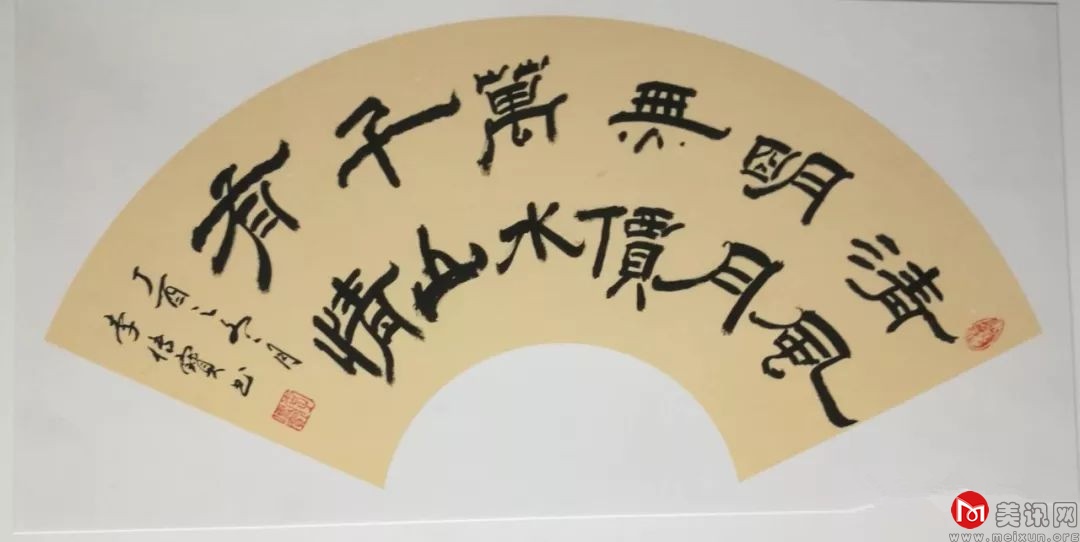 清風
明月
無價
萬水
千山
有情
丁酉 月
李 寶书
美讯网
www.meixun.org